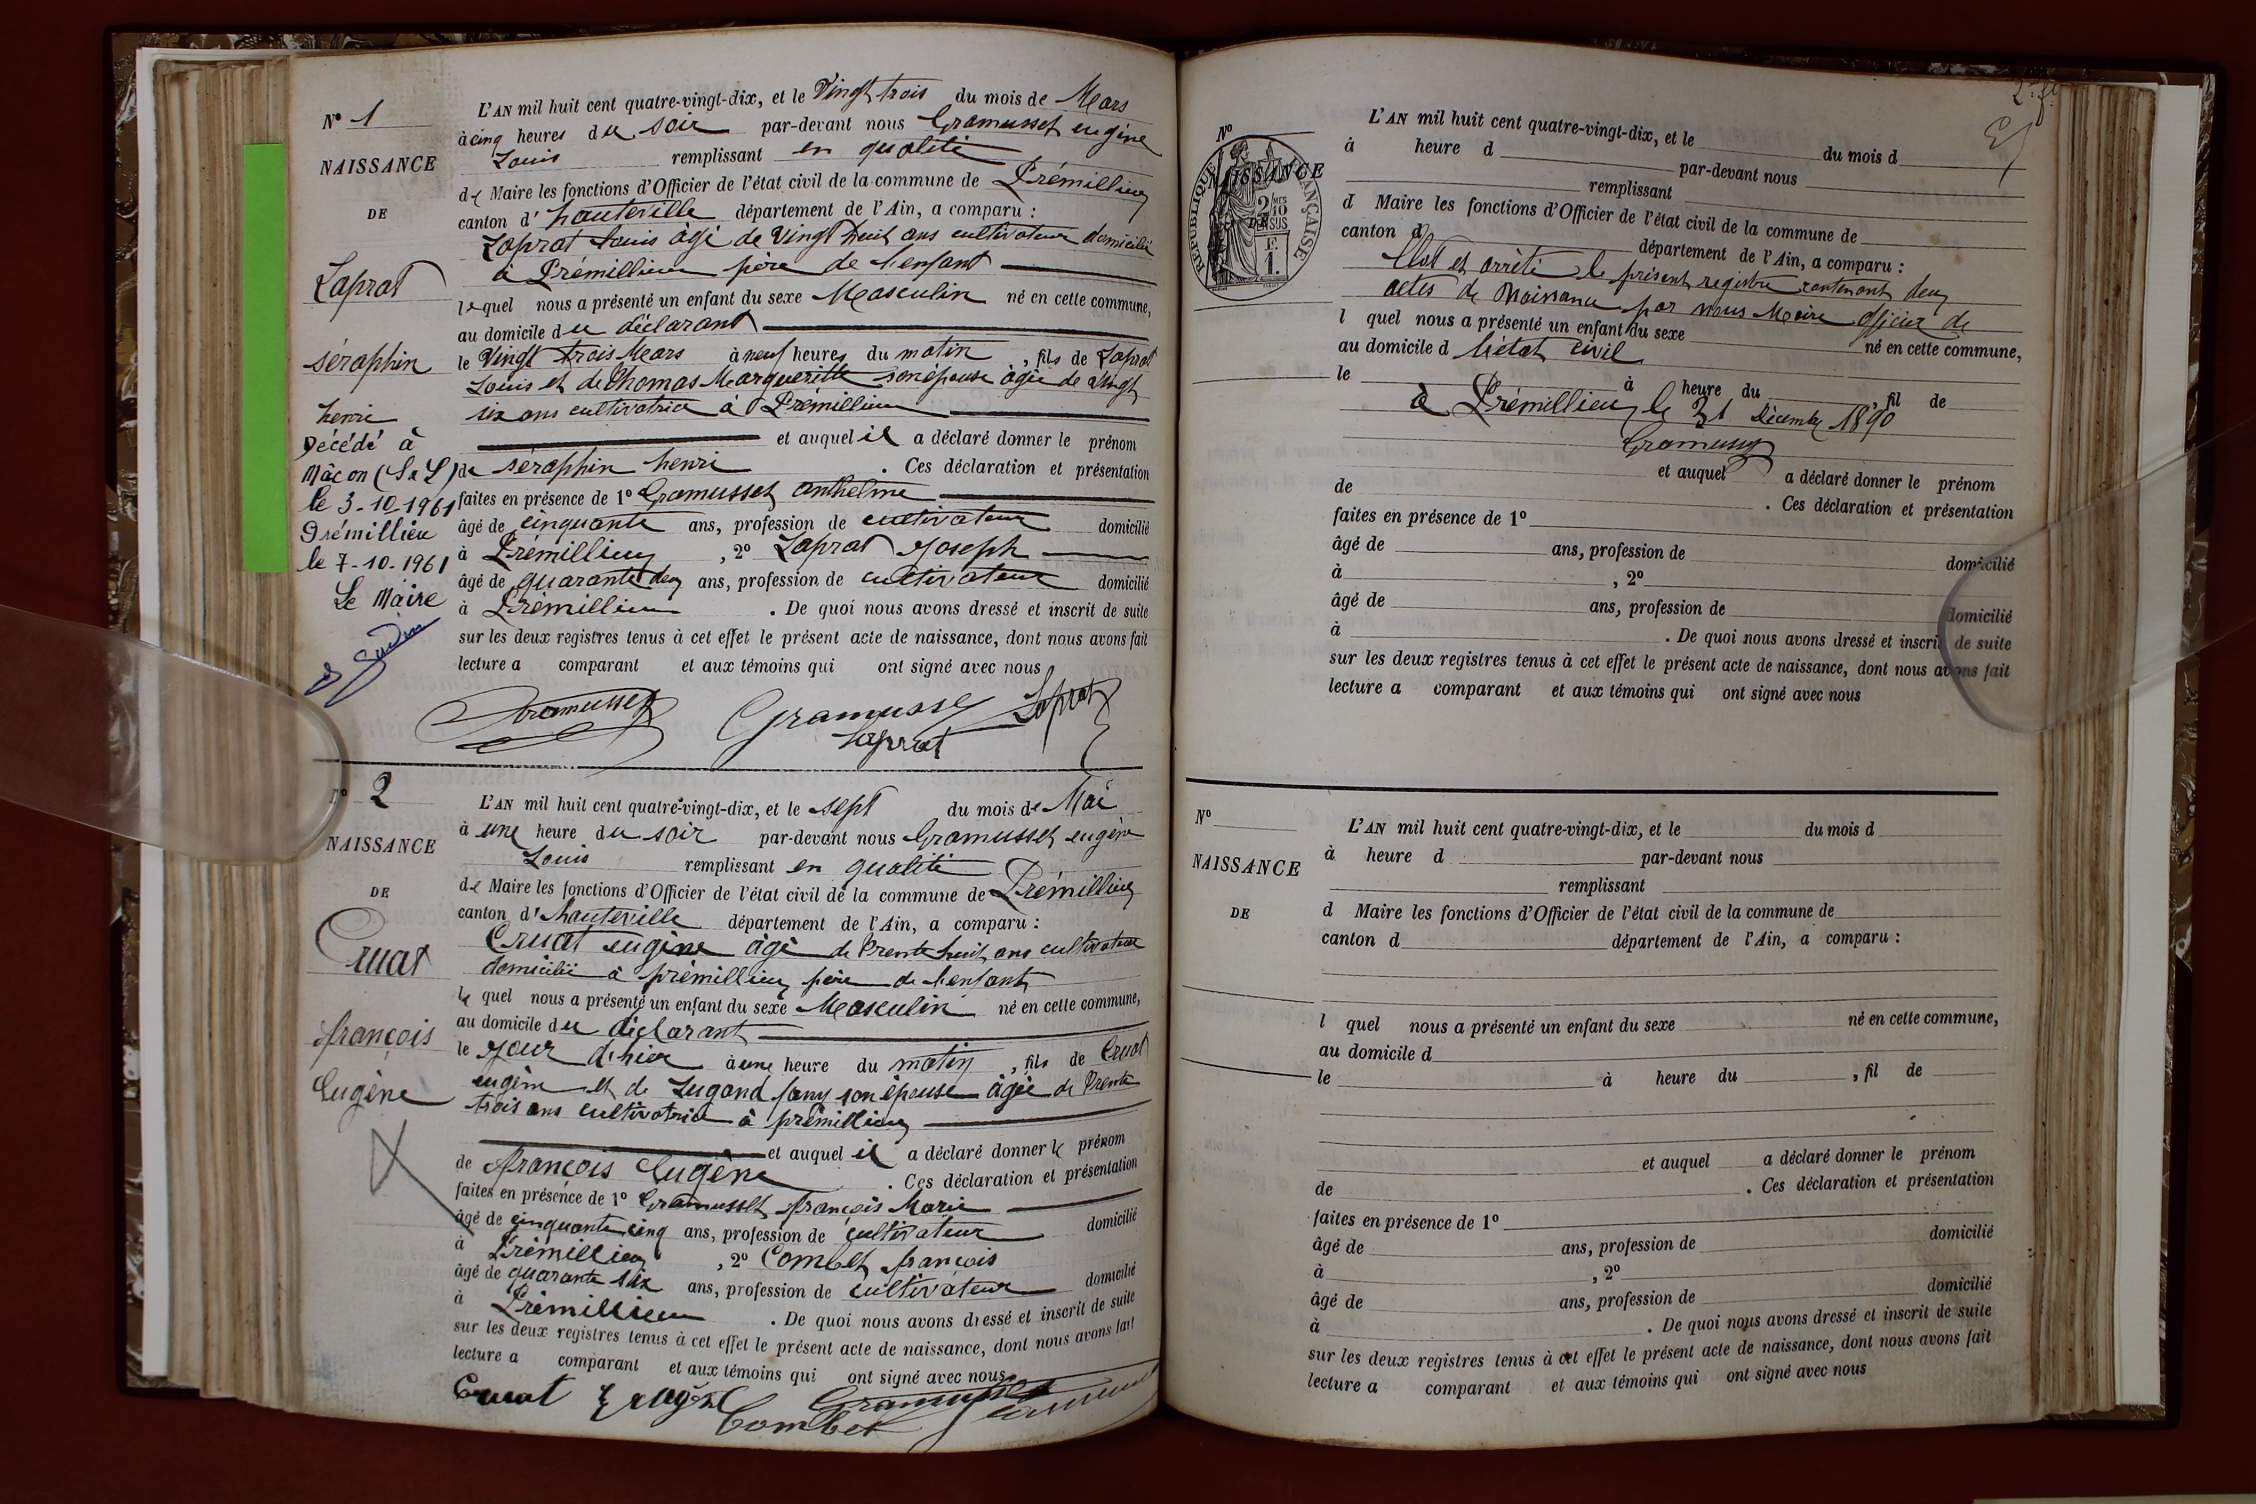 N° 1
NAISSANCE
DE
Laprat
séraphin
henri
Décédé à
Mâcon (S & L)
le 3-10-1961
Prémillieu
le 7-10-1961
Le Maire
L'AN mil huit cent quatre-vingt-dix, et le Vingt trois du mois de Mars
à cinq heures du soir par-devant nous Gramusset eugène
Louis remplissant en qualité
de Maire les fonctions d'Officier de l'état civil de la commune de Prémillieu
canton d'hauteville département de l'Ain, a comparu :
Laprat Louis âgé de Vingt huit ans cultivateur domicilié
à Prémillieu père de l'enfant
lequel nous a présenté un enfant du sexe Masculin né en cette commune,
au domicile du déclarant
le Vingt trois Mars à neuf heures du matin, fils de Laprat
Louis et de Thomas Margueritte son épouse âgée de vingt
six ans cultivatrice à Prémillieu
et auquel il a déclaré donner le prénom
de séraphin henri. Ces déclaration et présentation
faites en présence de 1° Gramusset anthelme
âgé de cinquante ans, profession de cultivateur domicilié
à Prémillieu, 2° Laprat Joseph
âgé de quarante deux ans, profession de cultivateur domicilié
à Prémillieu. De quoi nous avons dressé et inscrit de suite
sur les deux registres tenus à cet effet le présent acte de naissance, dont nous avons fait
lecture a comparant et aux témoins qui ont signé avec nous
Gramusset Gramusset Laprat
Laprat
N° 2
NAISSANCE
DE
Cruat
françois
Eugène
L'AN mil huit cent quatre-vingt-dix, et le sept du mois de Mai
à une heure du soir par-devant nous Gramusset eugène
Louis remplissant en qualité
de Maire les fonctions d'Officier de l'état civil de la commune de Prémillieu
canton d'hauteville département de l'Ain, a comparu :
Cruat eugène âgé de trente huit ans cultivateur
domicilié à prémillieu père de l'enfant
lequel nous a présenté un enfant du sexe Masculin né en cette commune,
au domicile du déclarant
le jour d'hier à une heure du matin, fils de Cruat
eugène et de Lugand fany son épouse âgée de trente
trois ans cultivatrice à prémillieu
et auquel il a déclaré donner le prénom
de françois Eugène. Ces déclaration et présentation
faites en présence de 1° Gramusset françois Marie
âgé de cinquante cinq ans, profession de cultivateur domicilié
à Prémillieu, 2° Combet françois
âgé de quarante six ans, profession de cultivateur domicilié
à Prémillieu. De quoi nous avons dressé et inscrit de suite
sur les deux registres tenus à cet effet le présent acte de naissance, dont nous avons fait
lecture a comparant et aux témoins qui ont signé avec nous
Cruat Gramusset
Combet
2e ft
N°
NAISSANCE
DE
RÉPUBLIQUE FRANÇAISE
2/10 MES
EN SUS
F.
1.
L'AN mil huit cent quatre-vingt-dix, et le du mois d
à heure d par-devant nous
remplissant
d Maire les fonctions d'Officier de l'état civil de la commune de
canton d département de l'Ain, a comparu :
Clos et arrêté le présent registre contenant deux
actes de Naissance par nous Maire officier de
l quel nous a présenté un enfant du sexe né en cette commune,
au domicile d l'état civil
le à heure du, fil de
à Prémillieu le 31 Décembre 1890
Gramusset
et auquel a déclaré donner le prénom
de. Ces déclaration et présentation
faites en présence de 1°
âgé de ans, profession de domicilié
à, 2°
âgé de ans, profession de domicilié
à. De quoi nous avons dressé et inscrit de suite
sur les deux registres tenus à cet effet le présent acte de naissance, dont nous avons fait
lecture a comparant et aux témoins qui ont signé avec nous
N°
NAISSANCE
DE
L'AN mil huit cent quatre-vingt-dix, et le du mois d
à heure d par-devant nous
remplissant
d Maire les fonctions d'Officier de l'état civil de la commune de
canton d département de l'Ain, a comparu :
l quel nous a présenté un enfant du sexe né en cette commune,
au domicile d
le à heure du, fil de
et auquel a déclaré donner le prénom
de. Ces déclaration et présentation
faites en présence de 1°
âgé de ans, profession de domicilié
à, 2°
âgé de ans, profession de domicilié
à. De quoi nous avons dressé et inscrit de suite
sur les deux registres tenus à cet effet le présent acte de naissance, dont nous avons fait
lecture a comparant et aux témoins qui ont signé avec nous